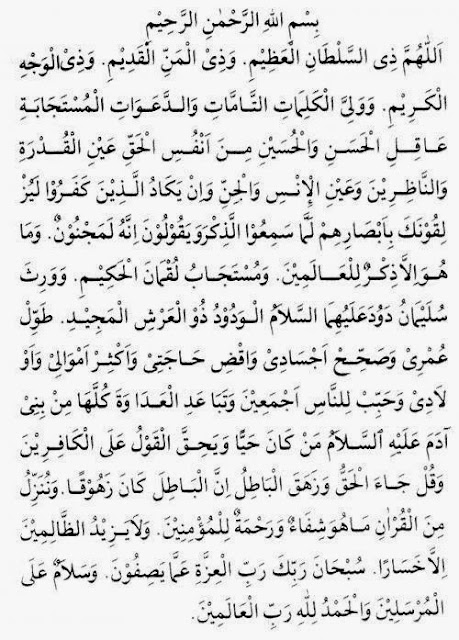 بِسْمِ اللهِ الرَّحْمٰنِ الرَّحِيْمِ
اَللّٰهُمَّ ذِى السُّلْطَانِ الْعَظِيْمِ. وَذِى الْمَنِّ الْقَدِيْمِ. وَذِى الْوَجْهِ
الْكَرِيْمِ. وَوَلِيَّ الْكَلِمَاتِ التَّامَّاتِ وَالدَّعَوَاتِ الْمُسْتَجَابَةِ
عَاقِلِ الْحَسَنِ وَالْحُسَيْنِ مِنْ اَنْفُسِ الْحَقِّ عَيْنِ الْقُدْرَةِ
وَالنَّاظِرِيْنَ وَعَيْنِ الْإِنْسِ وَالْجِنِّ وَاِنْ يَكَادُ الَّذِيْنَ كَفَرُوْا لَيُزْ
لِقُوْنَكَ بِاَبْصَارِهِمْ لَمَّا سَمِعُوْا الذِّكْرَ وَيَقُوْلُوْنَ اِنَّهُ لَمَجْنُوْنٌ. وَمَا
هُوَ اِلاَّ ذِكْرٌ لِلْعَالَمِيْنَ. وَمُسْتَجَابُ لُقْمَانَ الْحَكِيْمِ. وَوَرِثَ
سُلَيْمَانُ دَوُدَ عَلَيْهِمَا السَّلاَمُ الْوَدُوْدُ ذُوْ الْعَرْشِ الْمَجِيْدِ. طَوِّلْ
عُمْرِىْ وَصَحِّحْ اَجْسَادِىْ وَاقْضِ حَاجَتِىْ وَاَكْثِرْ اَمْوَالِىْ وَاَوْ
لاَدِىْ وَحَبِّبْ لِلنَّاسِ اَجْمَعِيْنَ وَتَبَاعَدِ الْعَدَاوَةَ كُلَّهَا مِنْ بَنِىْ
آدَمَ عَلَيْهِ السَّلاَمُ مَنْ كَانَ حَيًّا وَيَحِقَّ الْقَوْلُ عَلَى الْكَافِرِيْنَ
وَقُلْ جَاءَ الْحَقُّ وَزَهَقَ الْبَاطِلُ اِنَّ الْبَاطِلَ كَانَ زَهُوْقًا. وَنُنَزِّلُ
مِنَ الْقُرْاٰنِ مَا هُوَ شِفَاءٌ وَرَحْمَةٌ لِلْمُؤْمِنِيْنَ. وَلاَ يَزِيْدُ الظَّالِمِيْنَ
اِلاَّ خَسَارًا. سُبْحَانَ رَبِّكَ رَبِّ الْعِزَّةِ عَمَّا يَصِفُوْنَ. وَسَلاَمٌ عَلَى
الْمُرْسَلِيْنَ وَالْحَمْدُ لِلّٰهِ رَبِّ الْعَالَمِيْنَ.